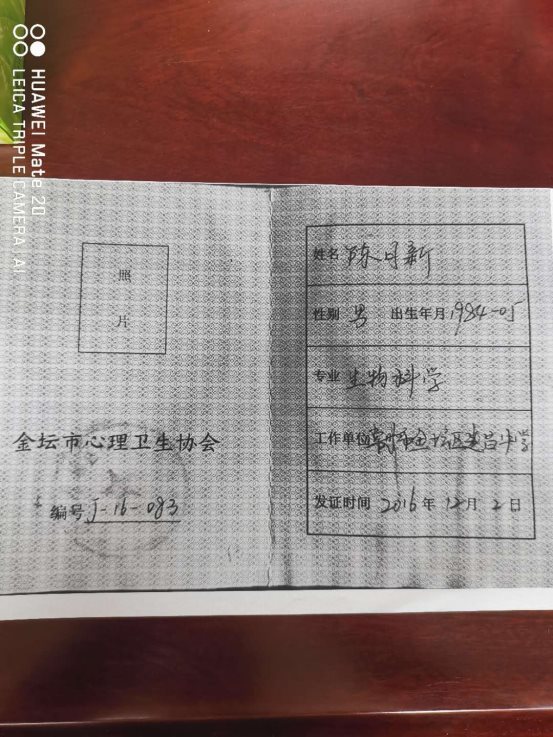 HUAWEI Mate 20
LEICA TRIPLE CAMERA | AI
照
片
金坛市心理卫生协会
编号 J-16-083
姓名 陈月新
性别 男 出生年月 1984-05
专业 生物科学
工作单位 常州市金坛区建昌中学
发证时间 2016年12月2日